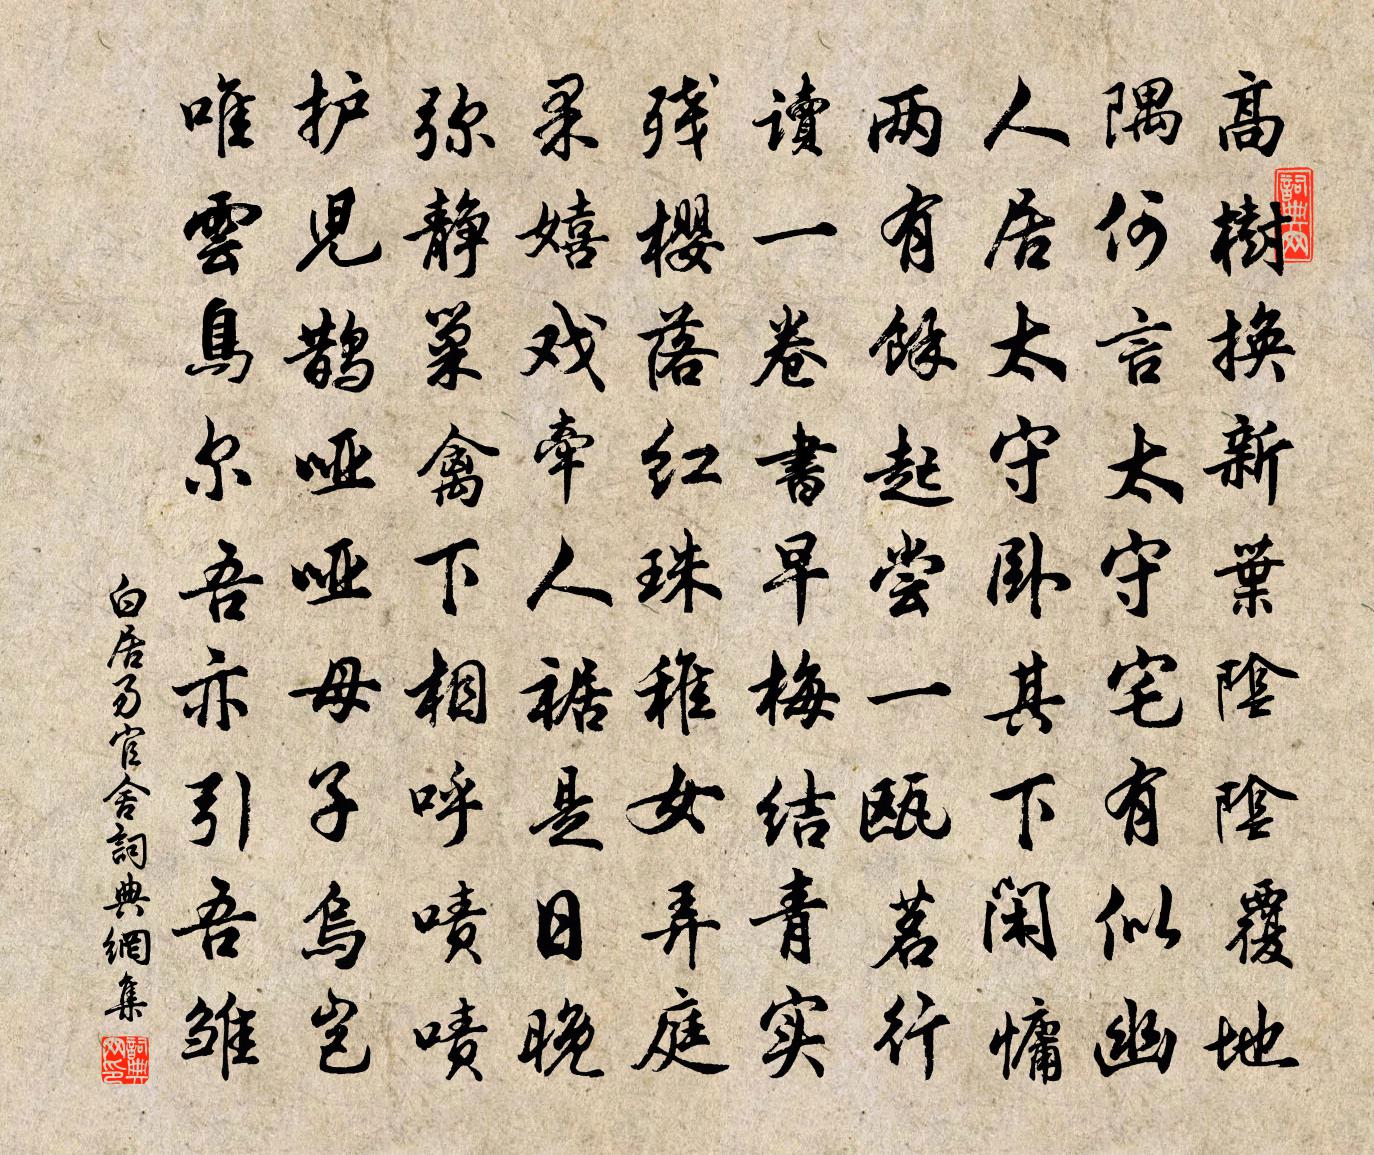 高樹換新葉陰陰覆地
隅何言太守宅有似幽
人居太守卧其下閑慵
两有餘起尝一瓯茗行
讀一卷書早梅结青实
残櫻落红珠稚女弄庭
果嬉戏牵人裾是日晚
弥静巢禽下相呼啧啧
护児鹊哑哑母子烏岂
唯雲鳥尔吾亦引吾雏
白居易官舍詞典網集
詞典网
詞典网印